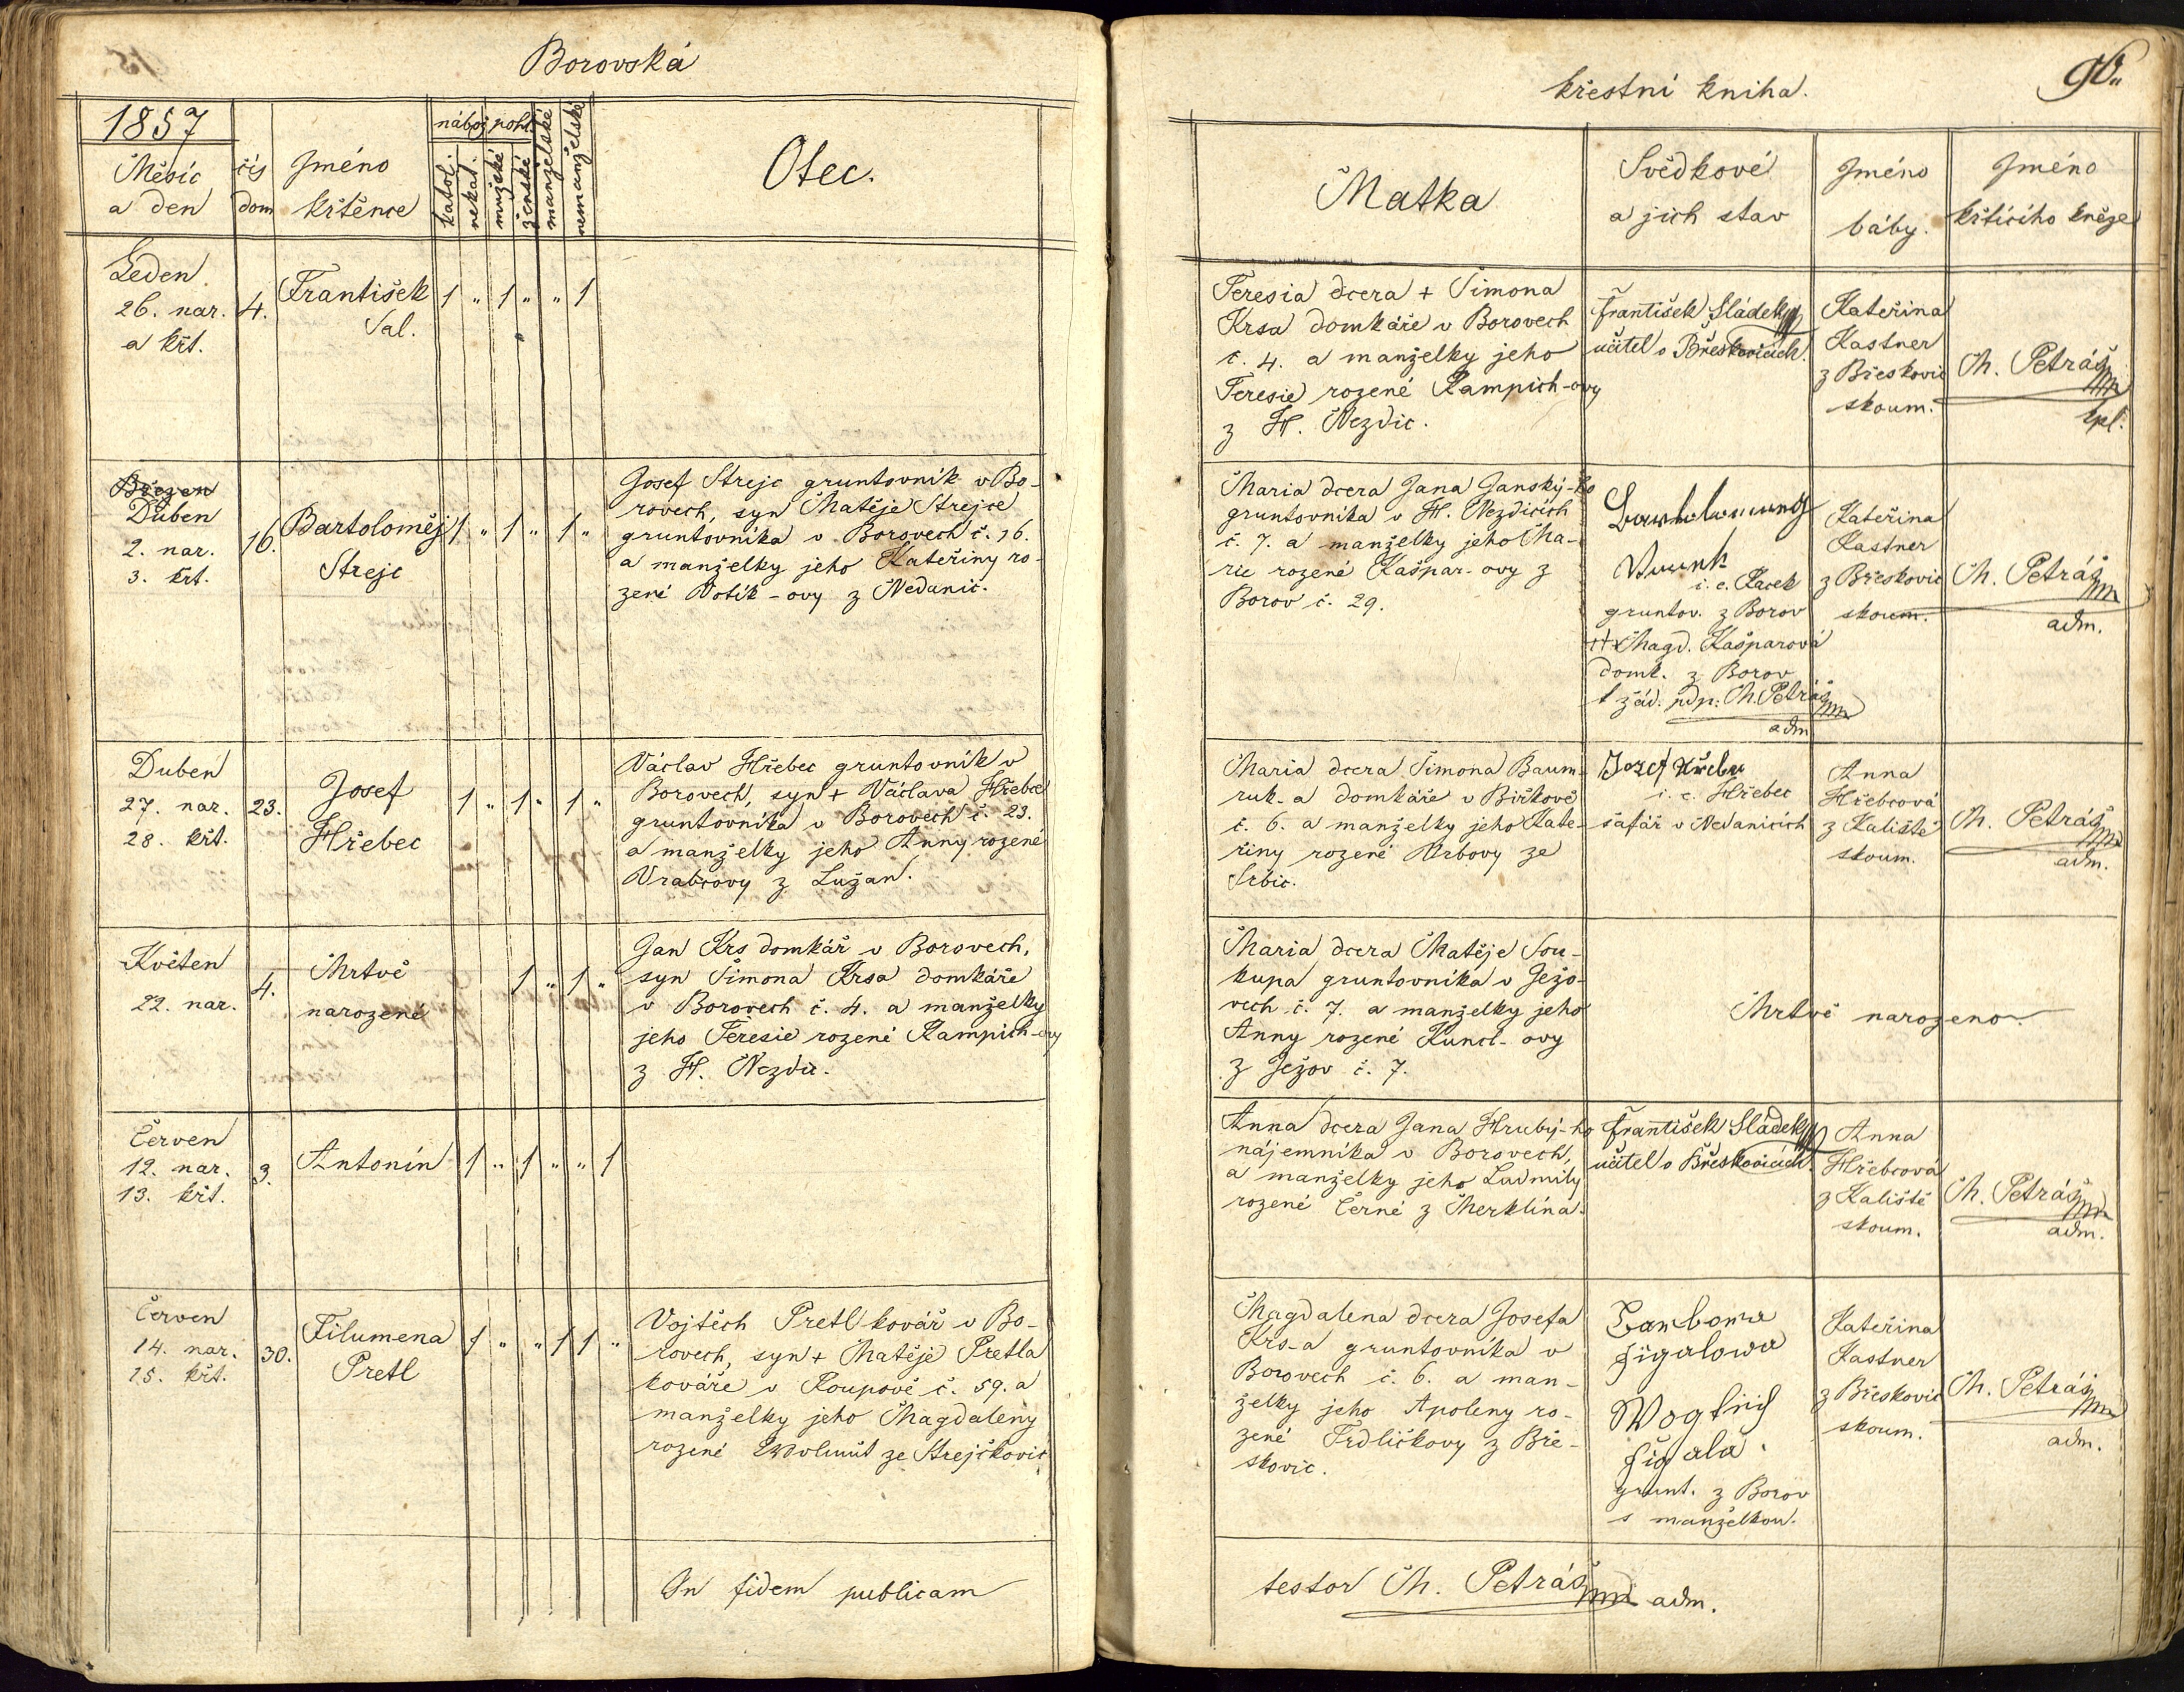 Borovská
1857
Měsíc
a den
čís
dom
Jméno
křtěnce
nábož.
pohl.
katol.
nekat.
mužské
ženské
manželské
nemanželské
Otec.
Leden
26. nar.
a křt.
4.
František
Sal.
1 " 1 " " 1
Březen
Duben
2. nar.
3. křt.
16.
Bartoloměj
Strejc
1 " 1 " 1 "
Josef Strejc gruntovník v Bo-
rovech, syn Matěje Strejce
gruntovníka v Borovech č. 16.
a manželky jeho Kateřiny ro-
zené Votík-ovy z Nedanic.
Duben
27. nar.
28. křt.
23.
Josef
Hřebec
1 " 1 " 1 "
Václav Hřebec gruntovník v
Borovech, syn + Václava Hřebce
gruntovníka v Borovech č. 23.
a manželky jeho Anny rozené
Vrabcovy z Lužan.
Květen
22. nar.
4.
Mrtvě
narozené
1 " 1 "
Jan Krs domkář v Borovech,
syn Šimona Krsa domkáře
v Borovech č. 4. a manželky
jeho Teresie rozené Rampich-ovy
z H. Nezdic.
Červen
12. nar.
13. křt.
3.
Antonín
1 " 1 " " 1
Červen
14. nar.
15. křt.
30.
Filumena
Pretl
1 " " 1 1 "
Vojtěch Pretl kovář v Bo-
rovech, syn + Matěje Pretla
kováře v Roupově č. 59. a
manželky jeho Magdaleny
rozené ze Strejčkovic
In fidem publicam
křestní kniha.
96.
Matka
Svědkové
a jich stav
Jméno
báby.
Jméno
křtícího kněze
Teresia dcera + Šimona
Krsa domkáře v Borovech
č. 4. a manželky jeho
Teresie rozené Rampich-ovy
z H. Nezdic.
František Sládek
učitel v Přeskovicích.
Kateřina
Kastner
z Břeskovic
skoum.
M. Petráš
kpl.
Maria dcera Jana Janský-ho
gruntovníka v H. Nezdicích
č. 7. a manželky jeho Ma-
rie rozené Kašpar-ovy z
Borov č. 29.
i. e. Racek
gruntov. z Borov
++ Magd. Kašparová
domk. z Borov
k žád. pdp: M. Petráš
adm
Kateřina
Kastner
z Břeskovic
skoum.
M. Petráš
adm.
Maria dcera Šimona Baum-
ruk-a domkáře v Biřkově
č. 6. a manželky jeho Kate-
řiny rozené Vrbovy ze
Srbic.
Jozef Hřebec
i. e. Hřebec
šafář v Nedanicích
Anna
Hřebcová
z Kaliště
skoum.
M. Petráš
adm.
Maria dcera Matěje Sou-
kupa gruntovníka v Ježo-
vech č. 7. a manželky jeho
Anny rozené Kuncl-ovy
z Ježov č. 7.
Mrtvě narozeno.
Anna dcera Jana Hrubý-ho
nájemníka v Borovech,
a manželky jeho Ludmily
rozené Černé z Merklína.
František Sládek
učitel v Břeskovicích.
Anna
Hřebcová
z Kaliště
skoum.
M. Petráš
adm.
Magdalena dcera Josefa
Krs-a gruntovníka v
Borovech č. 6. a man-
želky jeho Apoleny ro-
zené Trdličkovy z Bře-
skovic.
Figalowa
Wogtěch
Figala
grunt. z Borov
s manželkou.
Kateřina
Kastner
z Břeskovic
skoum.
M. Petráš
adm.
testor M. Petráš adm.